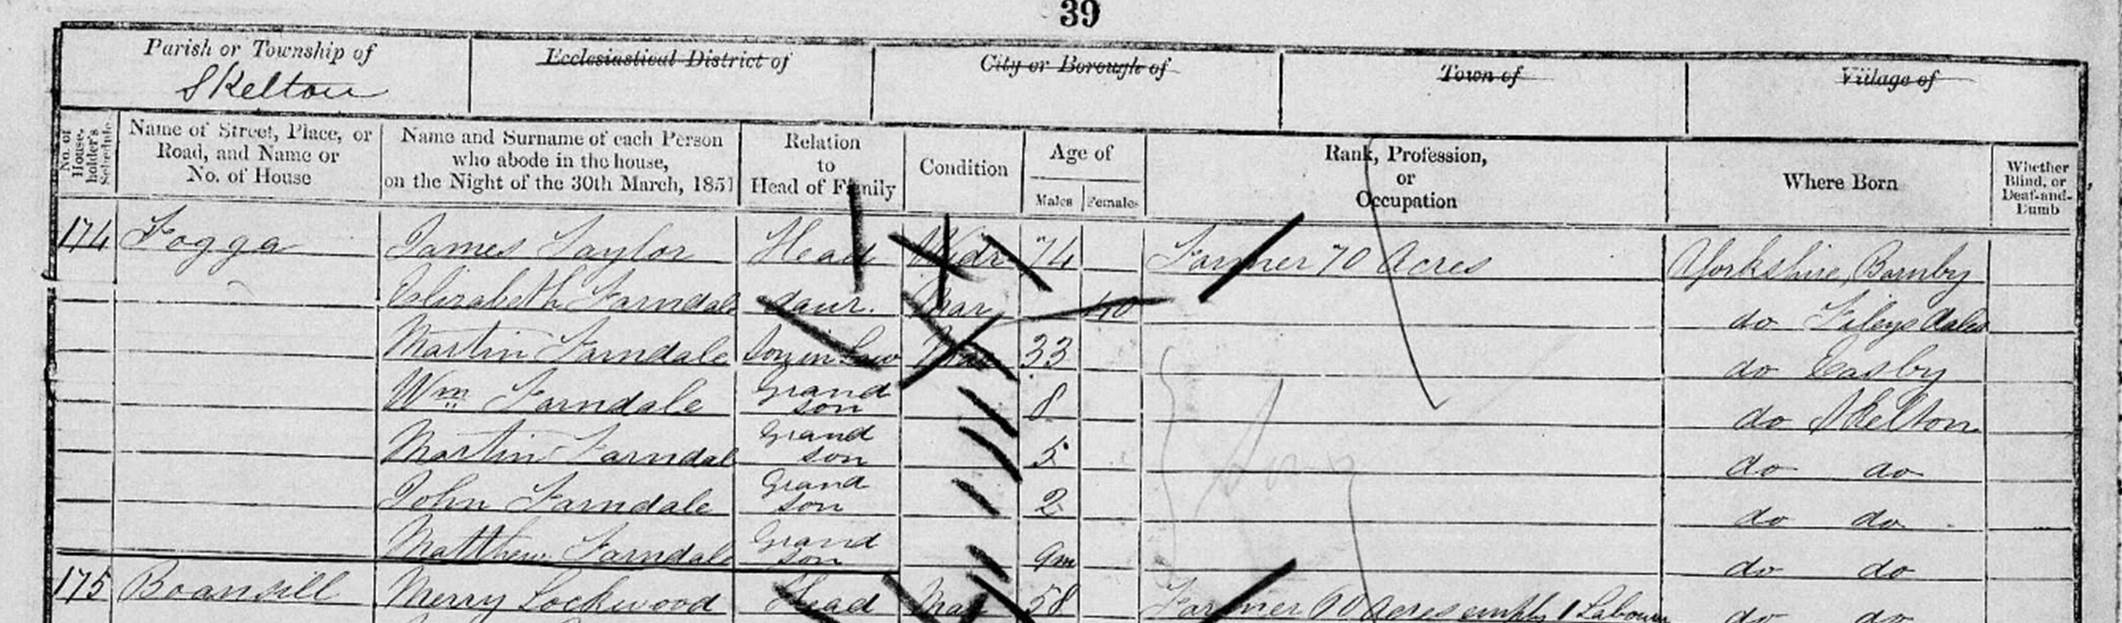 39
Parish or Township of
Skelton
Ecclesiastical District of
City or Borough of
Town of
Village of
No. of House-holder's Schedule
Name of Street, Place, or Road, and Name or No. of House
Name and Surname of each Person who abode in the house, on the Night of the 30th March, 1851
Relation to Head of Family
Condition
Age of
Males Females
Rank, Profession, or Occupation
Where Born
Whether Blind, or Deaf-and-Dumb
174 Fogga James Taylor Head Widr 74 Farmer 70 Acres Yorkshire, Barnby
Elizabeth Farndale daur. Mar 40 do
Martin Farndale Son in Law Mar 33 do Easby
Wm Farndale Grand son 8 do Skelton
Martin Farndale Grand son 5 do do
John Farndale Grand son 2 do do
Matthew Farndale Grand son 9m do do
175 Merry Lockwood Head Mar 58 Farmer Acres 1 Labourer do do